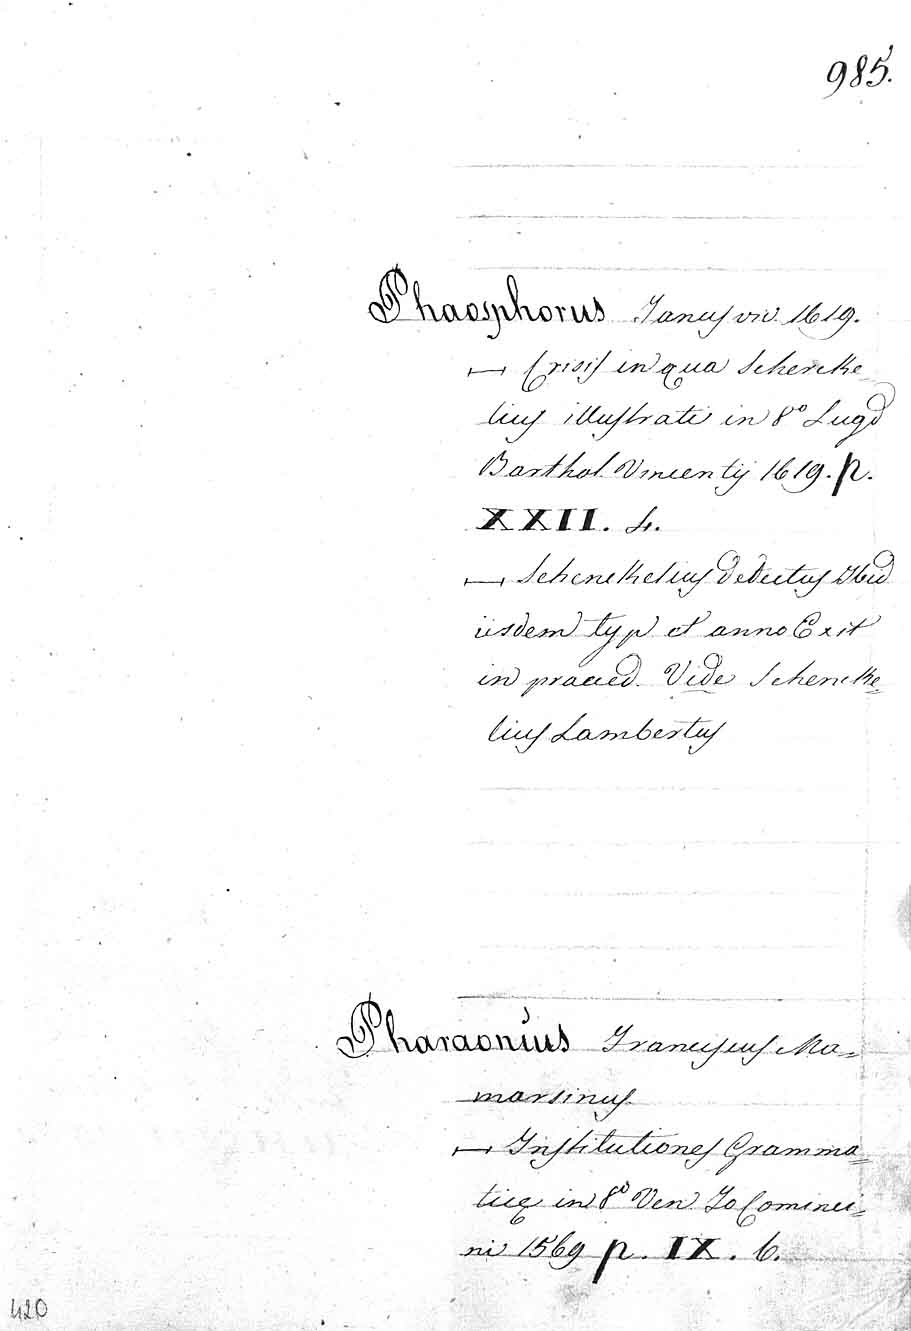 985.
Phaosphorus Janus viv. 1619.
— Crisis in qua Schencke
lius illustrati in 8º Lugd
Barthol. Vincentij 1619. p.
XXII. 4.
— Schenckelius detectus Ibid
iisdem typ et anno Exit
in praeced. Vide Schencke=
lius Lambertus
Pharaonius Franciscus Ma=
marsinus
— Institutiones Gramma=
ticę in 8º Ven Jo Comenci=
ni 1569 p. IX. 6.
420